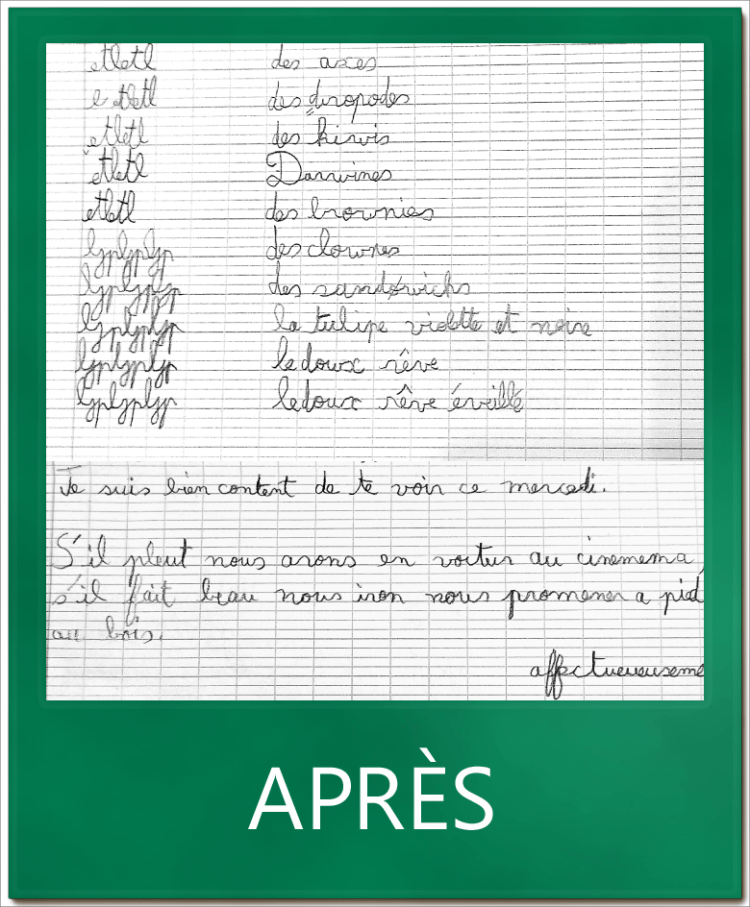 etletl des axes
etletl des diropodes
etletl des kiwis
etletl Darwines
etletl des brownies
lyplyplyp des clownes
lyplyplyp des sandwichs
lyplyplyp la tulipe violette et noire
lyplyplyp le doux rêve
lyplyplyp le doux rêve éveillé
Je suis bien content de te voir ce mercredi.
S'il pleut nous arons en voitur au cinemema
s'il fait beau nous iron nous promener a pied
au bois.
affectueueuseme
APRÈS